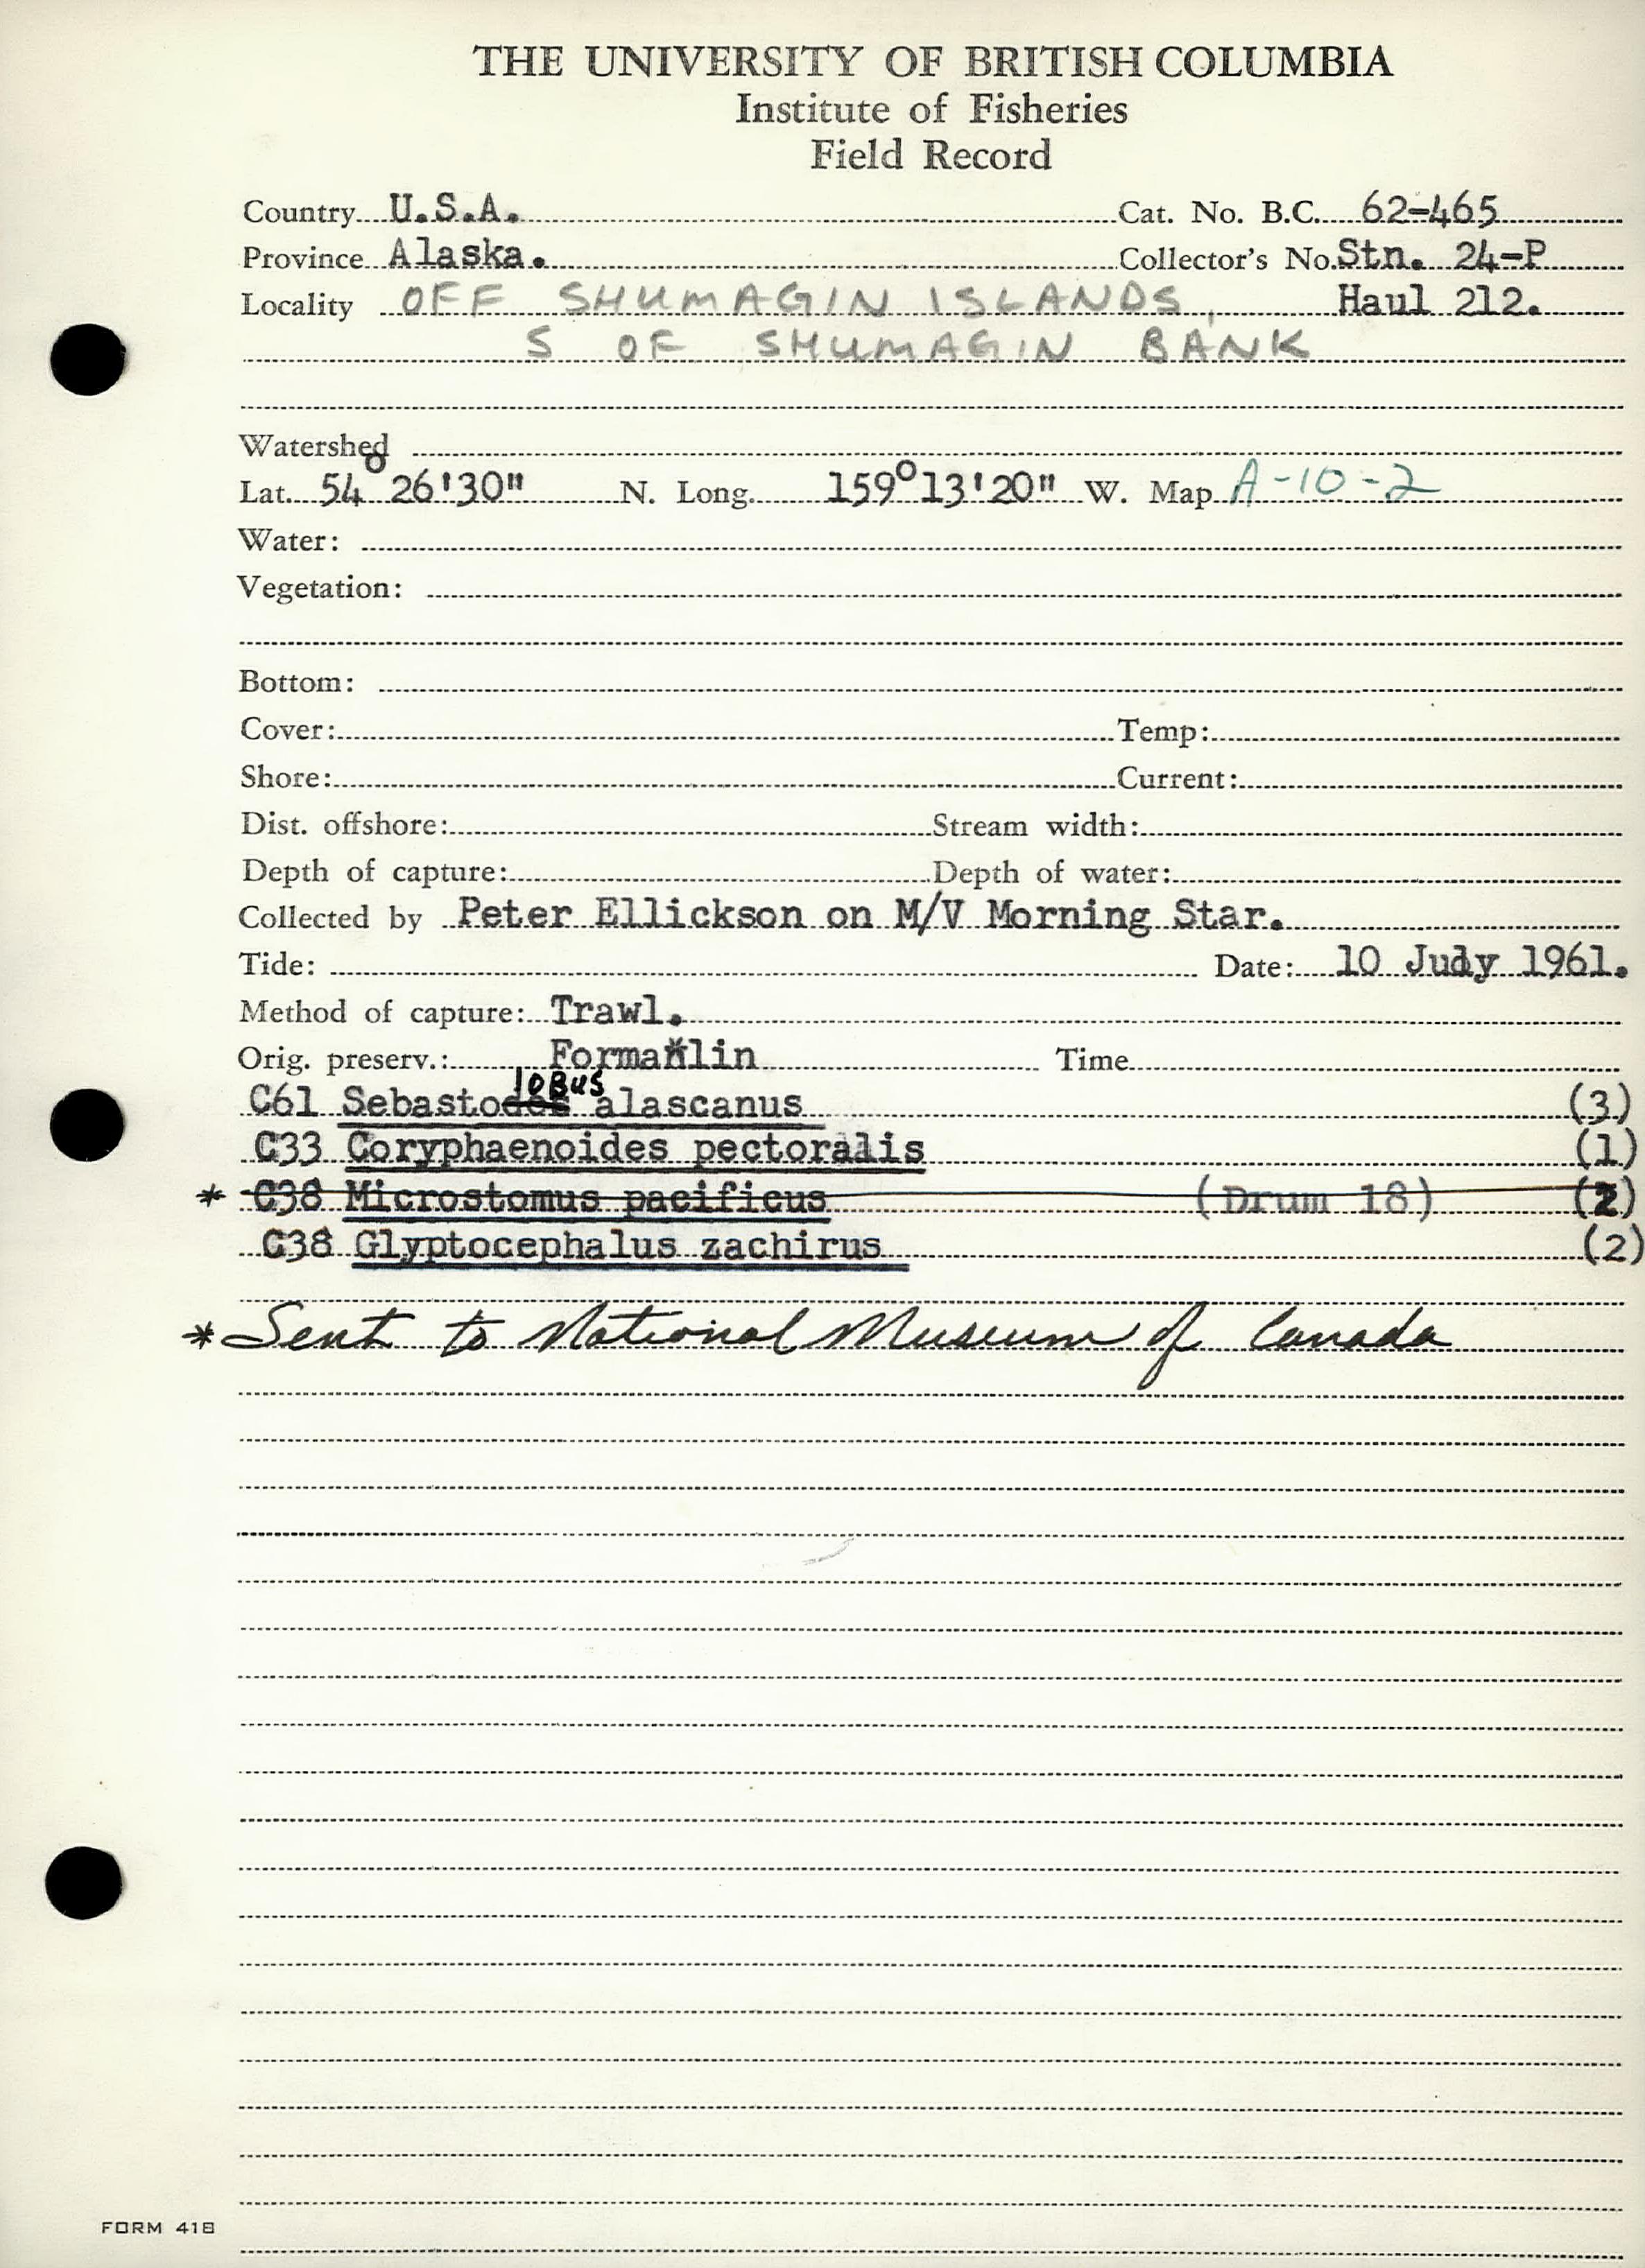 THE UNIVERSITY OF BRITISH COLUMBIA
Institute of Fisheries
Field Record
Country U.S.A. Cat. No. B.C. 62-465
Province Alaska. Collector's No. Stn. 24-P
Locality OFF SHUMAGIN ISLANDS, Haul 212.
S OF SHUMAGIN BANK
Watershed
Lat. 54° 26'30" N. Long. 159°13'20" W. Map A-10-2
Water:
Vegetation:
Bottom:
Cover: Temp:
Shore: Current:
Dist. offshore: Stream width:
Depth of capture: Depth of water:
Collected by Peter Ellickson on M/V Morning Star.
Tide: Date: 10 July 1961.
Method of capture: Trawl.
Orig. preserv.: Formalin Time
C61 Sebastolobus alascanus (3)
C33 Coryphaenoides pectoralis (1)
* C38 Microstomus pacificus (Drum 18) (2)
C38 Glyptocephalus zachirus (2)
* Sent to National Museum of Canada
FORM 418